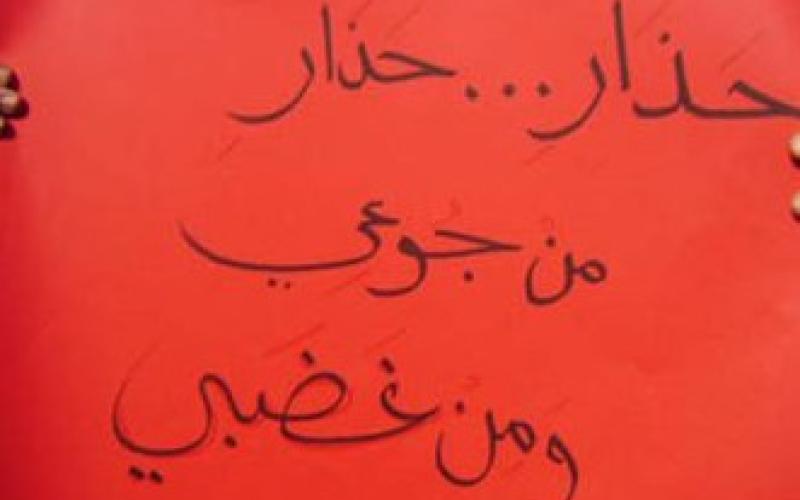 حَذارِ...حَذارِ
من جُوعي
ومن غَضَبي